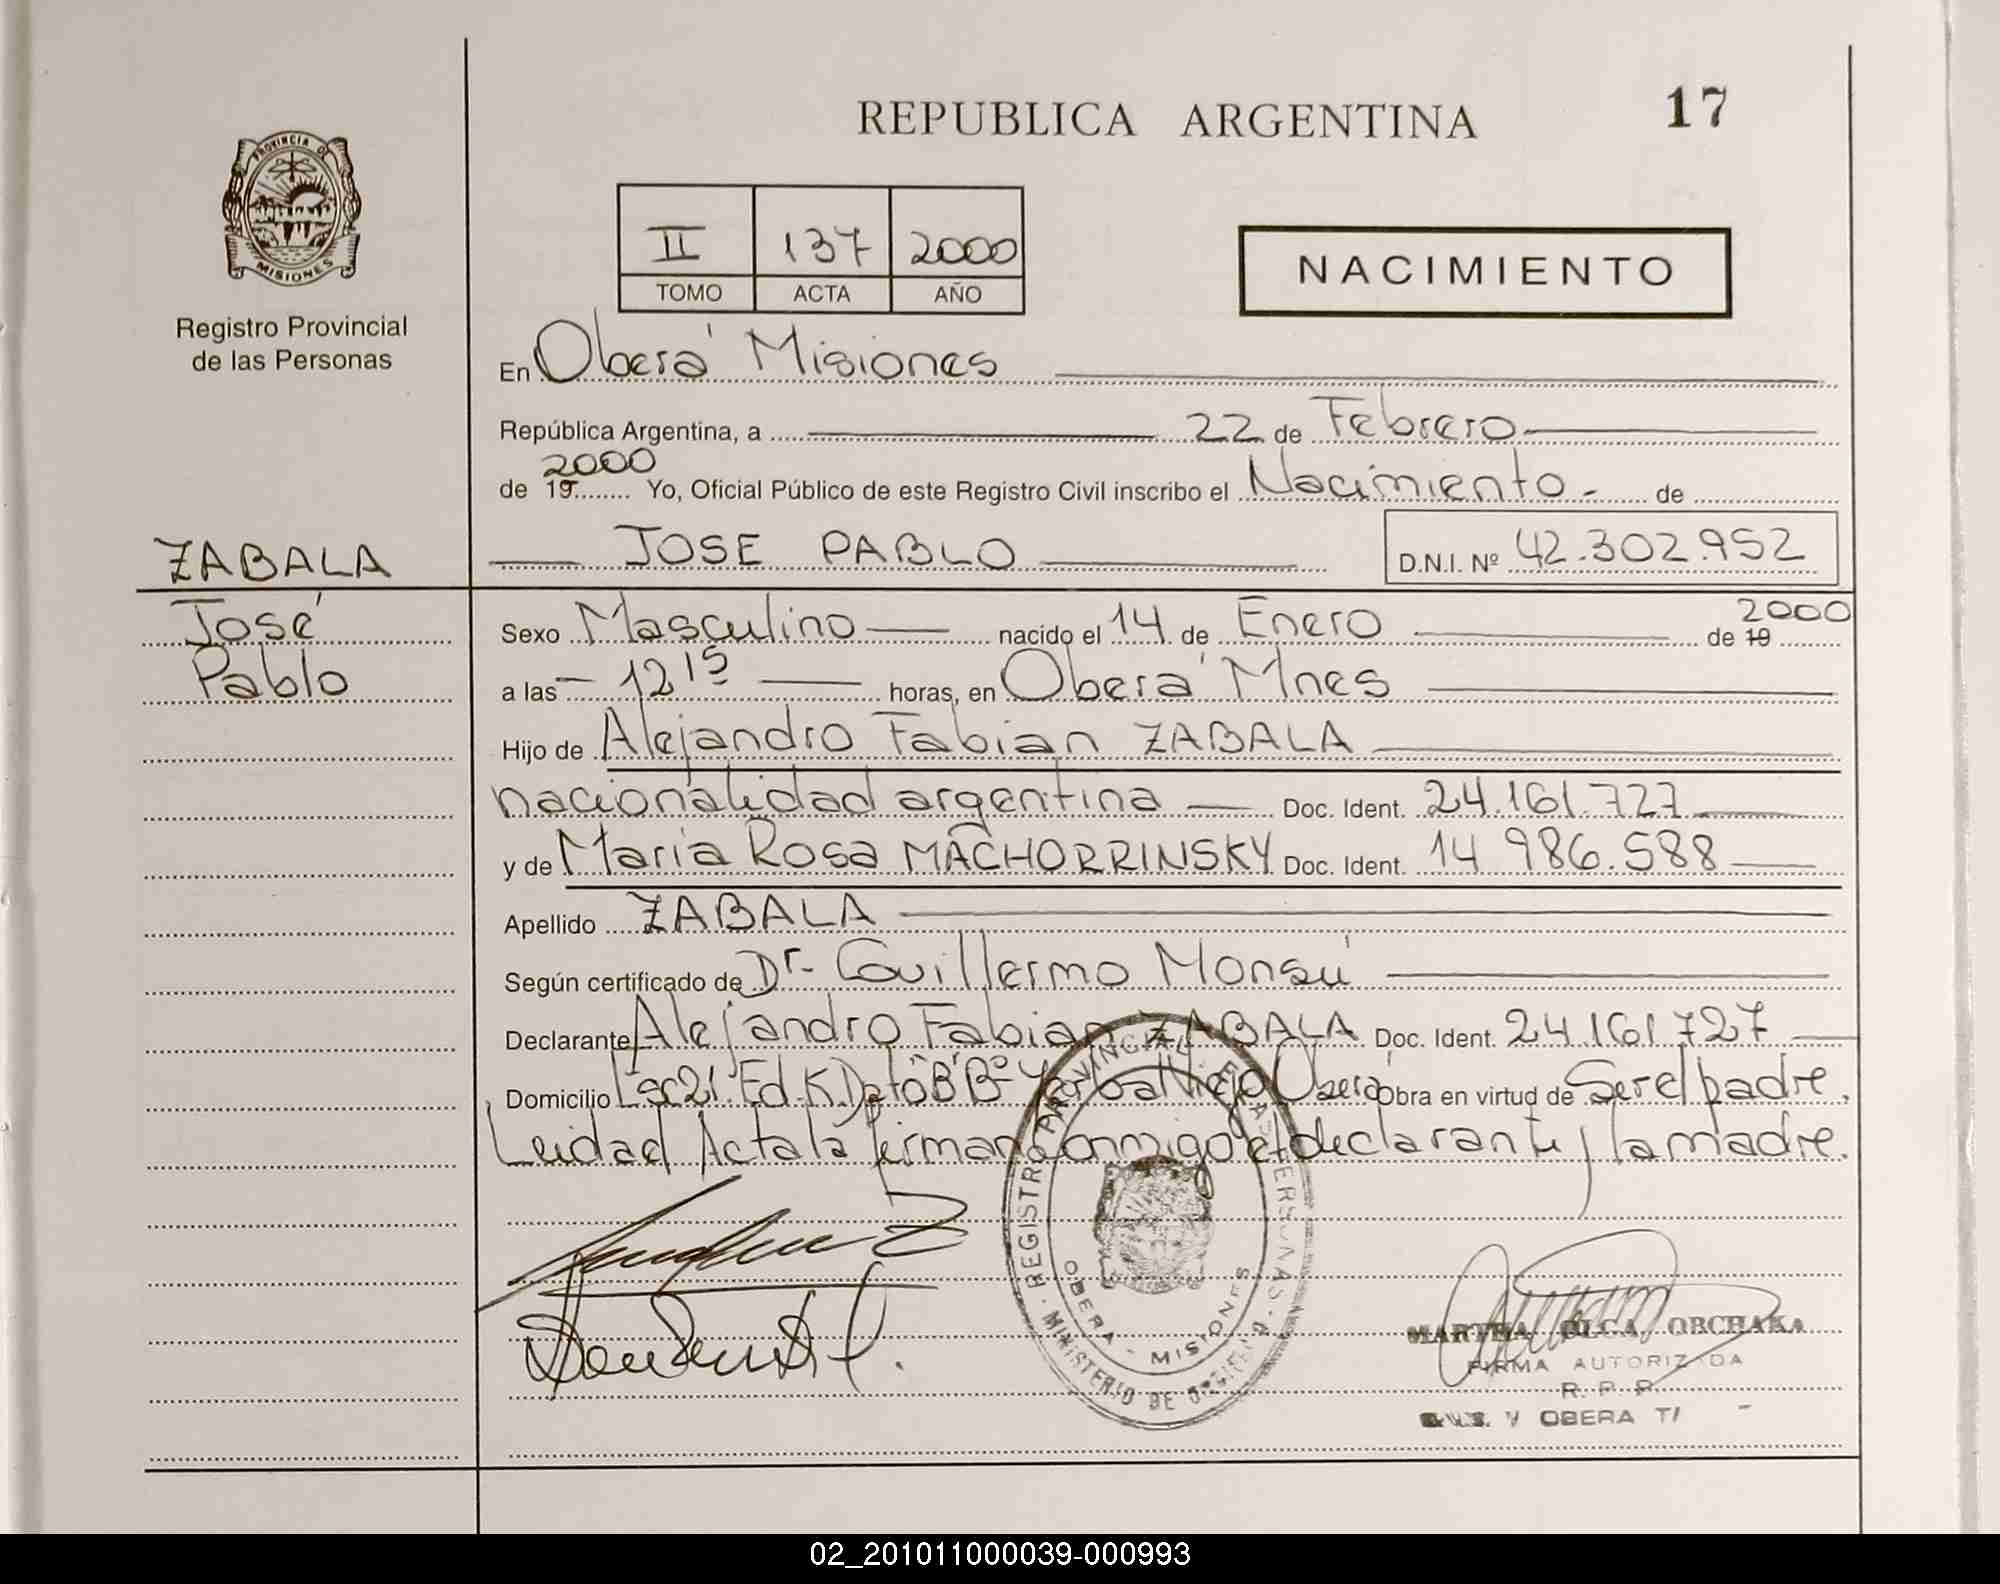 REPUBLICA ARGENTINA
17
PROVINCIA DE
MISIONES
Registro Provincial
de las Personas
II 137 2000
TOMO ACTA AÑO
NACIMIENTO
En Oberá Misiones
República Argentina, a 22 de Febrero
2000
de 19 Yo, Oficial Público de este Registro Civil inscribo el Nacimiento - de
ZABALA
JOSE PABLO
D.N.I. Nº 42.302.952
José
Pablo
Sexo Masculino nacido el 14 de Enero de 19 2000
a las 12 15 horas, en Oberá Mnes
Hijo de Alejandro Fabian ZABALA
nacionalidad argentina Doc. Ident. 24.161.727
y de Maria Rosa MACHORRINSKY Doc. Ident. 14 986.588
Apellido ZABALA
Según certificado de Dr. Guillermo Monsú
Declarante Alejandro Fabian ZABALA Doc. Ident. 24.161.727
Domicilio Ed. K Dpto "B" Bº Yerbal Viejo Oberá Obra en virtud de Ser el padre.
Leida el Acta la firman conmigo el declarante y la madre.
REGISTRO PROVINCIAL DE LAS PERSONAS
MINISTERIO DE
OBERA - MISIONES
MARTHA OLGA OBCHAKA
FIRMA AUTORIZADA
R. P. P.
OBERA
02_201011000039-000993